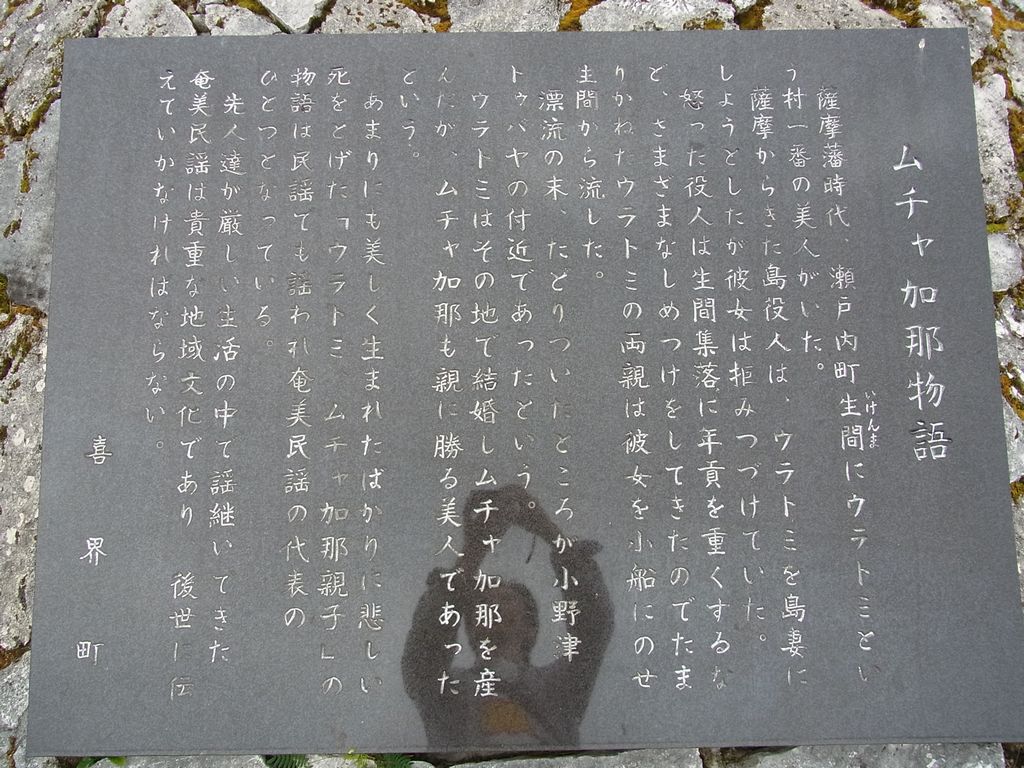 ムチャ加那物語
薩摩藩時代、瀬戸内町生間にウラトミとい
いけんま
う村一番の美人がいた。
薩摩からきた島役人は、ウラトミを島妻に
しょうとしたが彼女は拒みつづけていた。
怒った役人は生間集落に年貢を重くするな
ど、さまざまなしめつけをしてきたのでたま
りかねたウラトミの両親は彼女を小船にのせ
生間から流した。
漂流の末、たどりついたところが小野津
トゥバヤの付近であったという。
ウラトミはその地で結婚しムチャ加那を産
んだが、ムチャ加那も親に勝る美人であった
という。
あまりにも美しく生まれたばかりに悲しい
死をとげた「ウラトミ ムチャ加那親子」の
物語は民謡でも謡われ奄美民謡の代表の
ひとつとなっている。
先人達が厳しい生活の中で謡継いできた
奄美民謡は貴重な地域文化であり 後世に伝
えていかなければならない。
喜界町